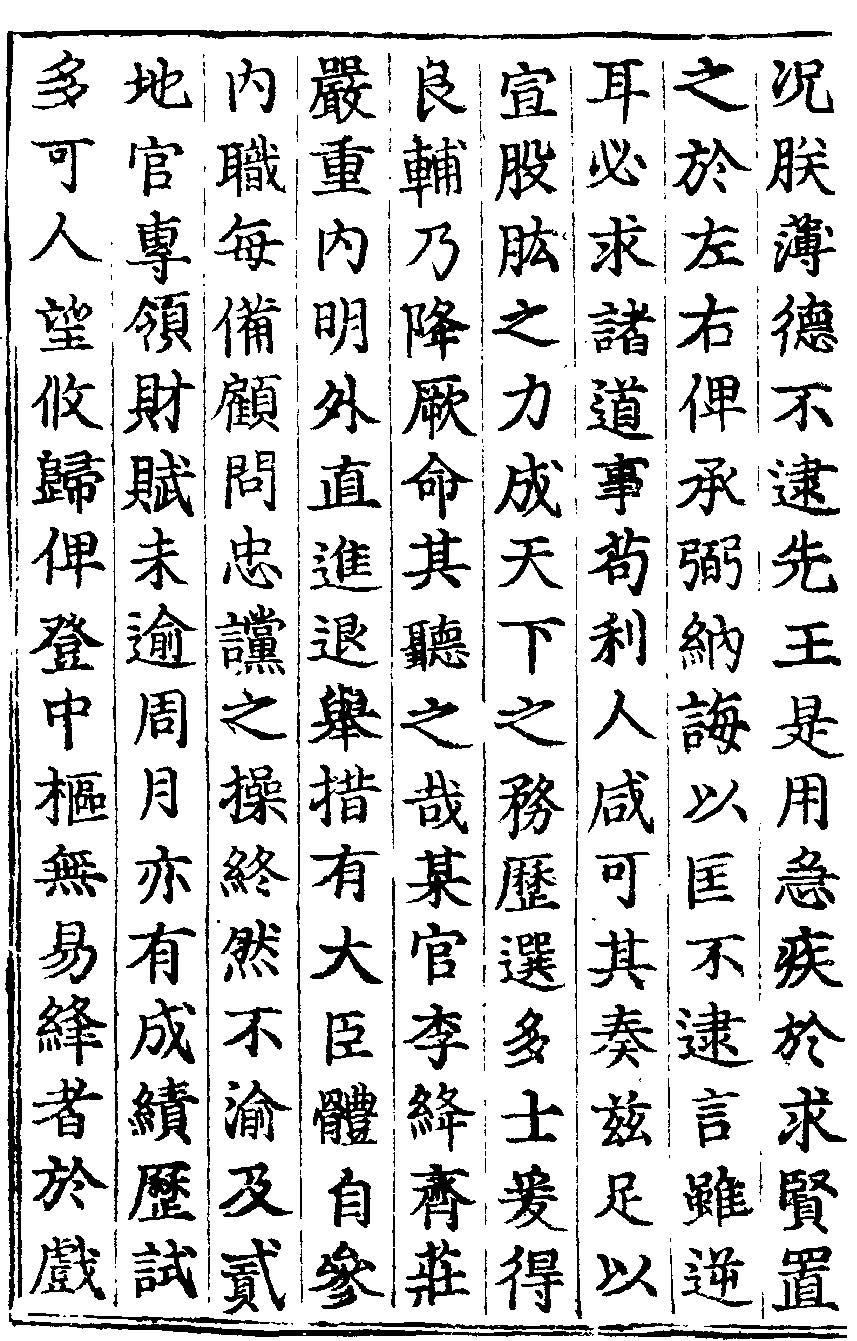 况朕薄德不逮先王是用急疾於求賢置
之於左右俾承弼納誨以匡不逮言雖逆
耳必求諸道事苟利人咸可其奏兹足以
宣股肱之力成天下之務歷選多士爰得
良輔乃降厥命其聽之哉某官李絳齊莊
嚴重内明外直進退舉措有大臣體自參
内職每備顧問忠讜之操終然不渝及貳
地官專領財賦未逾周月亦有成績歷試
多可人望攸歸俾登中樞無易絳者於戲